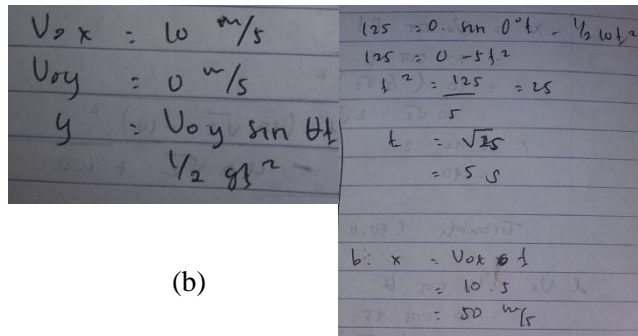 Vox = 10 m/s
Voy = 0 m/s
y = Voy sin θt
1/2 gt² -
(b)
125 = 0. sin 0°t - 1/2 10t²
125 = 0 - 5t²
t² = 125 = 25
5
t = √25
= 5 s
b. x = Vox • t
= 10 . 5
= 50 m/s